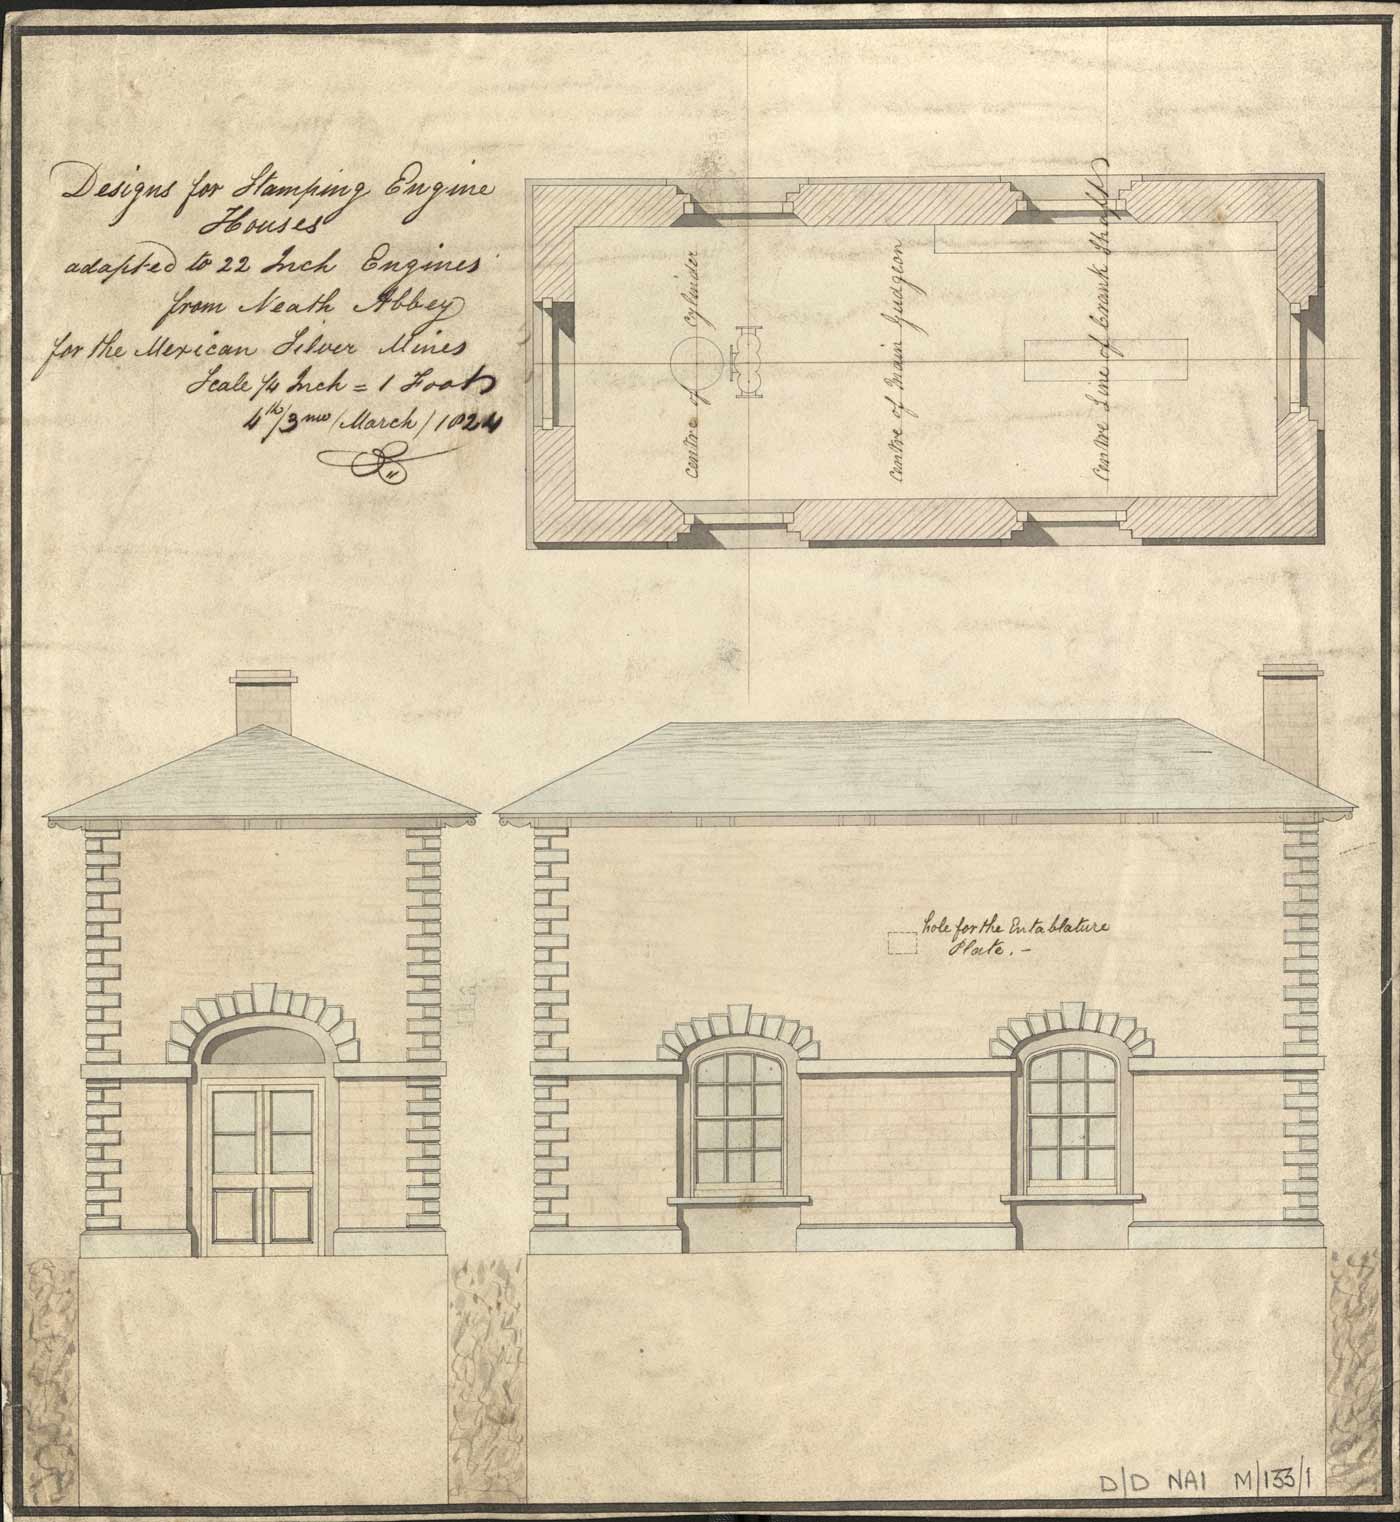 Designs for Stamping Engine
Houses
adapted to 22 Inch Engines
from Neath Abbey
for the Mexican Silver Mines
Scale 1/4 Inch = 1 Foot
4th/3mo/March/1824
centre of cylinder
centre of Main Gudgeon
centre Line of Crank Shaft
hole for the Entablature
Plate. –
D/D NAI M/133/1